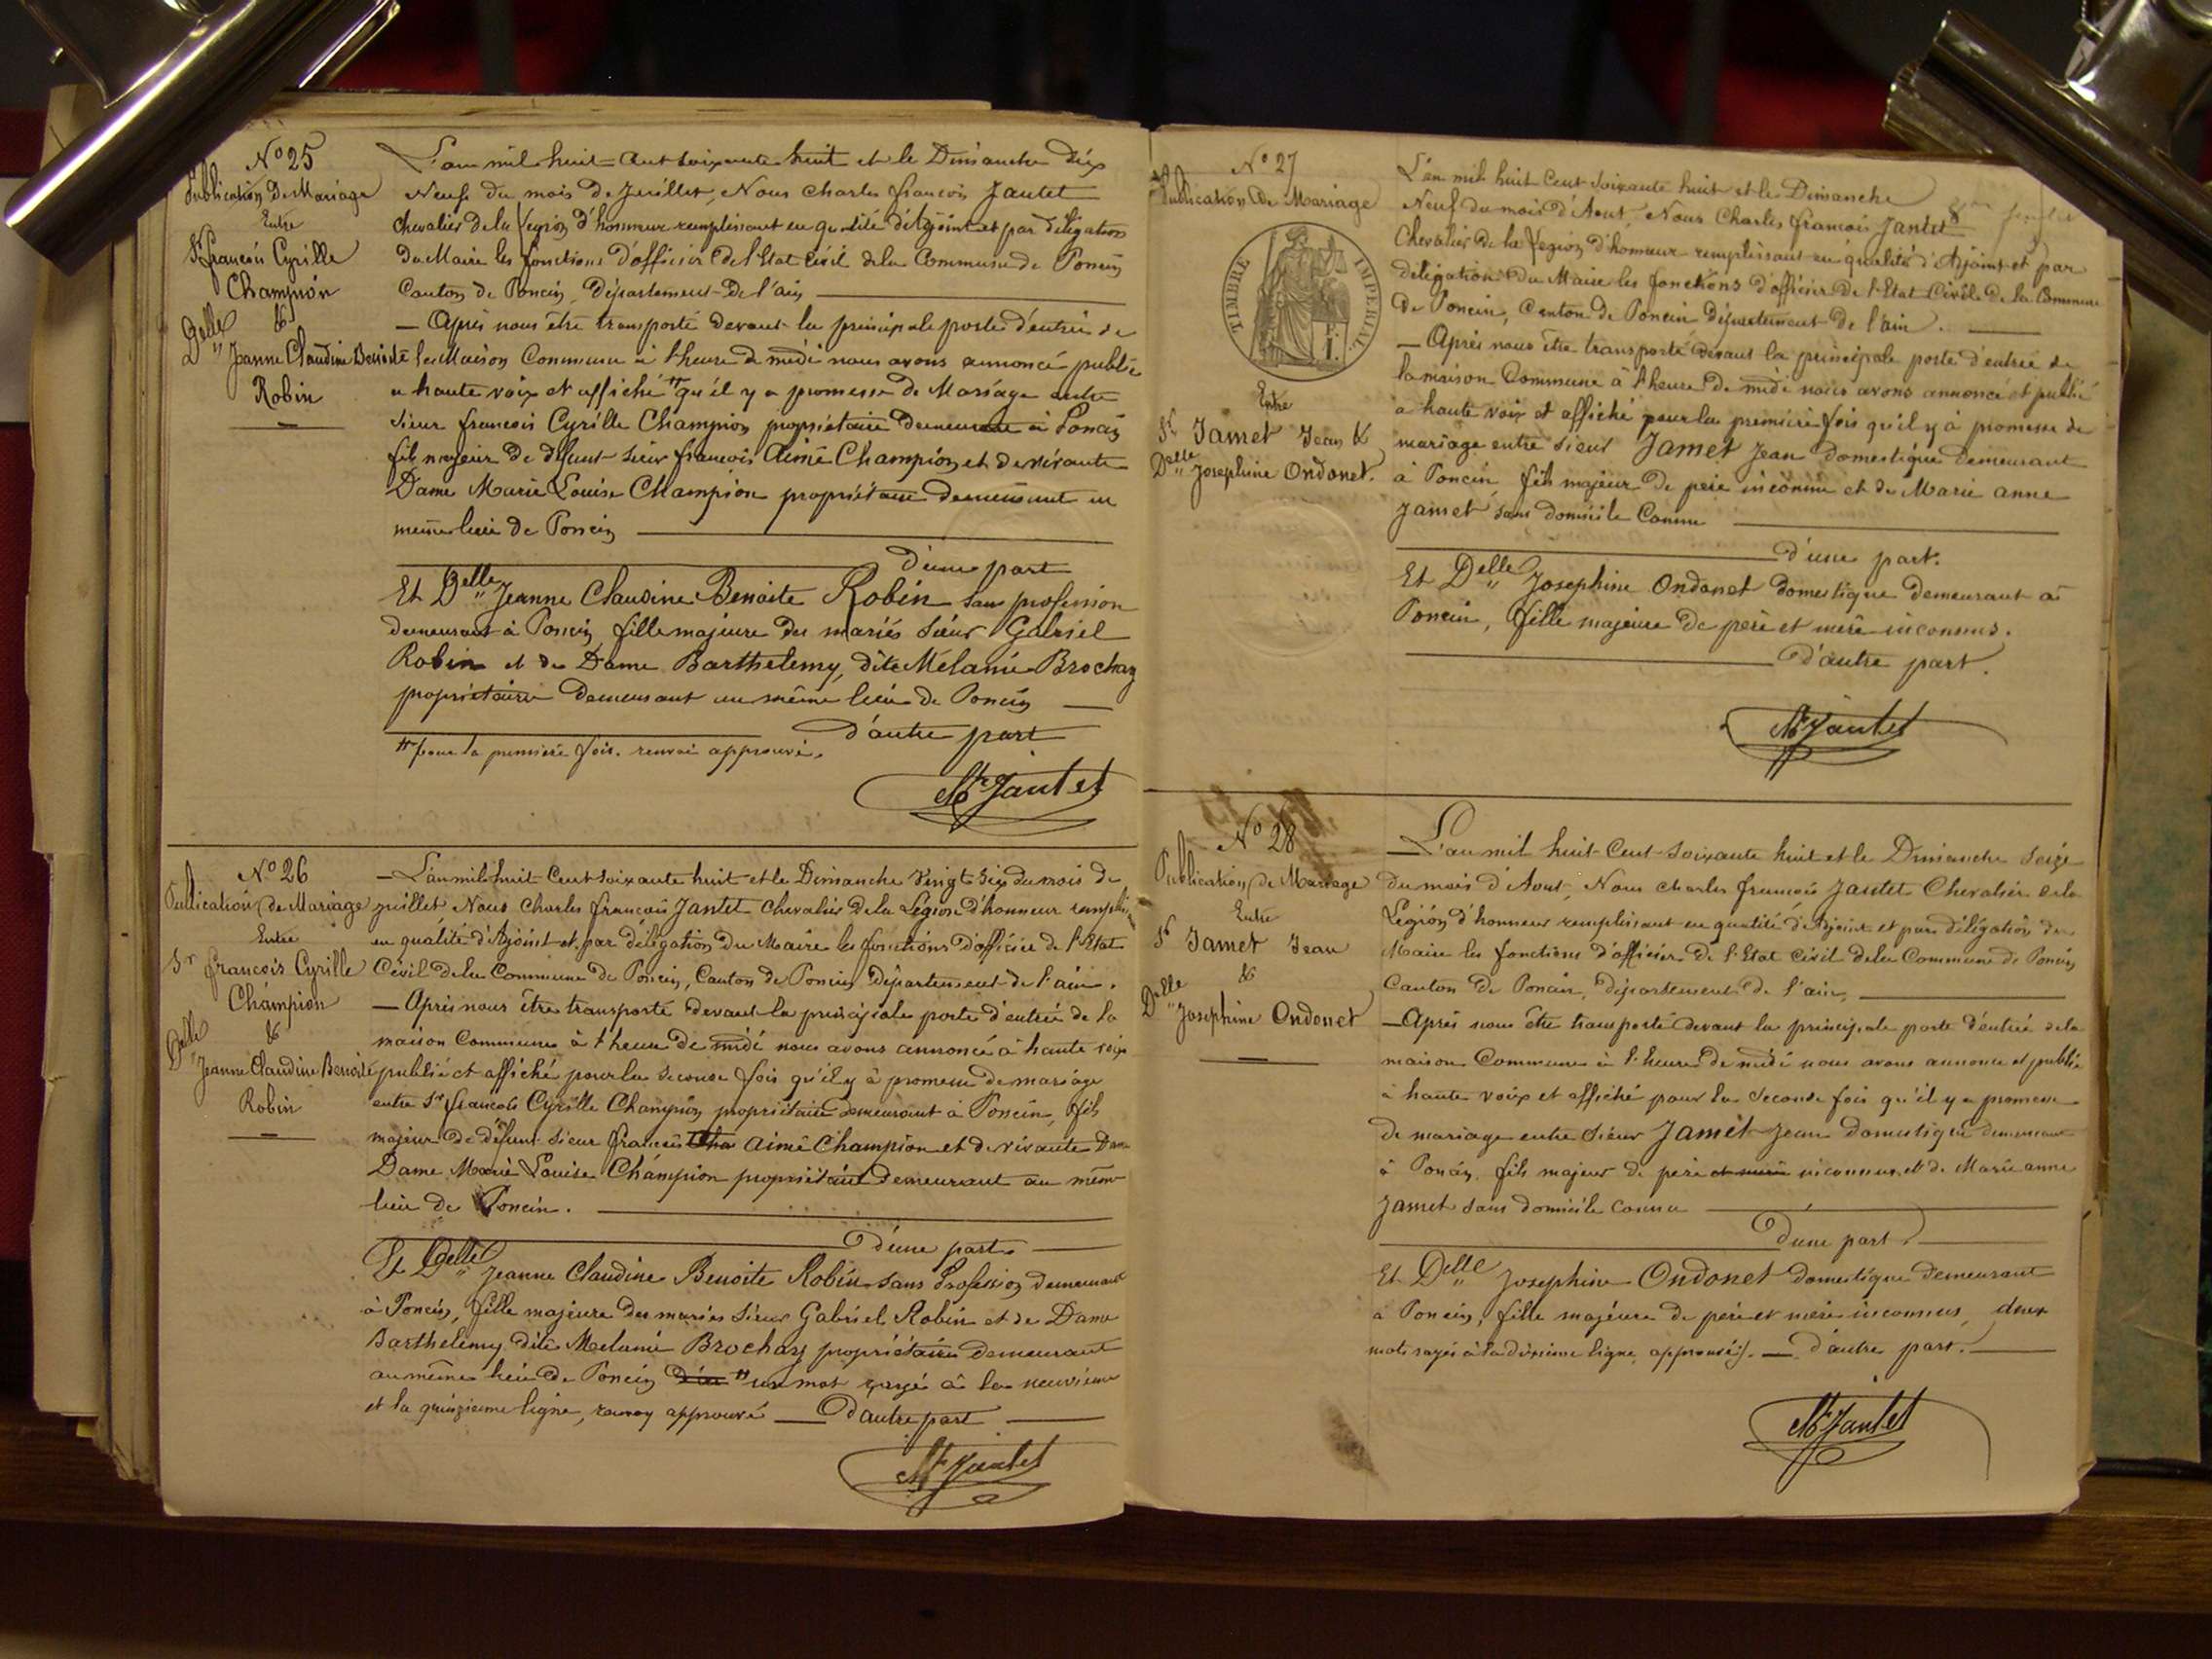 N° 25
Publication de Mariage
Entre
Sr françois Cyrille
Champion
&
Delle Jeanne Claudine Benoite
Robin
L'an mil huit cent soixante huit et le Dimanche dix
Neuf du mois de Juillet, Nous Charles françois Jantet
Chevalier de la Legion d'honneur remplissant en qualité d'Adjoint et par délégation
du Maire les fonctions d'officier de l'Etat Civil de la Commune de Poncin
Canton de Poncin, Département de l'ain
— Après nous être transporté devant la principale porte d'entrée de
la Maison Commune à l'heure de midi nous avons annoncé publié
a haute voix et affiché # qu'il y a promesse de Mariage entre
Sieur françois Cyrille Champion propriétaire demeurant à Poncin
fils majeur de défunt sieur françois Aimé Champion et de vivante
Dame Marie Louise Champion propriétaire demeurant au
même lieu de Poncin
d'une part
Et Delle Jeanne Claudine Benoite Robin sans profession
demeurant à Poncin fille majeure des mariés Sieur Gabriel
Robin et de Dame Barthelemy, dite Mélanie Brochay
propriétaire demeurant au même lieu de Poncin
d'autre part
# pour la première fois. renvoi approuvé.
Jantet
N° 26
Publication de Mariage
Entre
Sr françois Cyrille
Champion
&
Delle Jeanne Claudine Benoite
Robin
— L'an mil huit Cent soixante huit et le Dimanche Vingt Six du mois de
juillet Nous Charles françois Jantet Chevalier de la Légion d'honneur
en qualité d'Ajoint et par délégation du Maire les fonctions d'officier de l'Etat
Civil de la Commune de Poncin, Canton de Poncin Département de l'ain.
— Après nous être transporté devant la principale porte d'entrée de la
maison Commune à l'heure de midi nous avons annoncé à haute voix
publié et affiché pour la seconde fois qu'il y à promesse de mariage
entre Sr françois Cyrille Champion propriétaire demeurant à Poncin, fils
majeur de défunt sieur françois Cha Aimé Champion et de vivante Dame
Dame Marie Louise Champion propriétaire demeurant au même
lieu de Poncin.
D'une part.
Et Delle Jeanne Claudine Benoite Robin sans Profession demeurant
à Poncin, fille majeure des mariés Sieur Gabriel Robin et de Dame
Barthelemy dite Melanie Brochay propriétaire demeurant
au même lieu de Poncin # un mot rayé à la neuvième
et la quinzième ligne, renvoy approuvé — D'autre part
Jantet
N° 27
Publication de Mariage
TIMBRE IMPERIAL
Entre
Sr Jamet Jean &
Delle Josephine Ondonet.
L'an mil huit Cent soixante huit et le Dimanche
Neuf du mois d'Aout, Nous Charles françois Jantet
Chevalier de la Legion d'honneur remplissant en qualité d'Adjoint et par
délégation du Maire les fonctions d'officier de l'Etat Civil de la Commune
de Poncin, Canton de Poncin département de l'ain.
— Après nous être transporté devant la principale porte d'entrée de
la maison Commune à l'heure de midi nous avons annoncé et publié
à haute voix et affiché pour la première fois qu'il y à promesse de
mariage entre sieur Jamet Jean domestique demeurant
à Poncin, fils majeur de père inconnu et de Marie anne
Jamet sans domicile Connu
d'une part.
Et Delle Josephine Ondonet domestique demeurant à
Poncin, fille majeure de père et mère inconnus.
d'autre part.
Jantet
N° 28
Publication de Mariage
Entre
Sr Jamet Jean
&
Delle Josephine Ondonet
— L'an mil huit Cent soixante huit et le Dimanche seize
du mois d'Aout, Nous Charles françois Jantet Chevalier de la
Légion d'honneur remplissant en qualité d'Adjoint et par délégation du
Maire les fonctions d'officier de l'Etat Civil de la Commune de Poncin
Canton de Poncin, Département de l'ain,
— Après nous être transporté devant la principale porte d'entrée de la
maison Commune à l'heure de midi nous avons annoncé et publié
à haute voix et affiché pour la Seconde fois qu'il y a promesse
de mariage entre Sieur Jamet Jean domestique demeurant
à Poncin, fils majeur de père et mère inconnus et de Marie anne
Jamet sans domicile connu
D'une part
Et Delle Josephine Ondonet domestique demeurant
à Poncin, fille majeure de père et mère inconnus, deux
mots rayés à la dixième ligne approuvés. — d'autre part.
Jantet